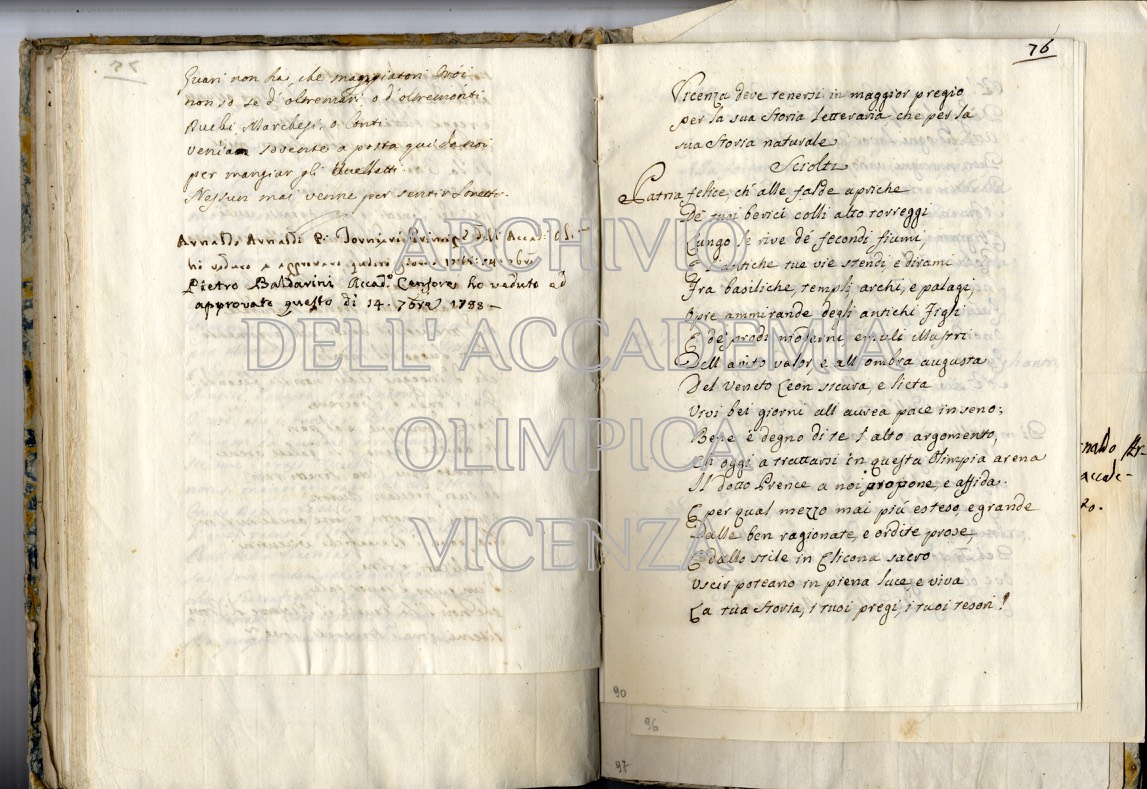 Guari non ha che maggiatori Eroi
non so se d'oltremari, o d'oltremonti
Duchi, Marchesi, o Conti
veniam sovente a posta qui da noi
per mangiar gli Uccelletti.
Nessun mai venne per sentir Sonetti.
Arnaldo Arnaldi Pi Tornieri Principe dell' Accad. Oli
ho veduto e approvato questo giorno 14 7bre
Pietro Baldarini Accad.o Censore ho veduto ed
approvato questo dì 14. 7bre 1788
76
Vicenza deve tenersi in maggior pregio
per la sua storia letteraria che per la
sua storia naturale
Sciolti
Patria felice, ch' alle falde apriche
De' tuoi berici colli alto torreggi
Lungo le rive de' fecondi fiumi,
E l'antiche tue vie stendi e dirami
Fra basiliche, templi, archi, e palagi,
Opre ammirande degli antichi Figli
E de' prodi moderni emuli Mastri
Dell' avito valor, e all' ombra augusta
Del Veneto Leon sicura, e lieta
Vivi bei giorni all' aurea pace in seno;
Bene è degno di te l'alto argomento,
Ch' oggi a trattarsi in questa Olimpia arena
Il dotto Prence a noi propone, e affida.
E per qual mezzo mai più esteso, e grande
Dalle ben ragionate, e ordite prose,
E dallo stile in Elicona sacro
Uscir poteano in piena luce, e viva
La tua storia, i tuoi pregi, i tuoi tesori!
naldo Ar-
accade-
90
96
97
ARCHIVIO
DELL'ACCADEMIA
OLIMPICA
VICENZA